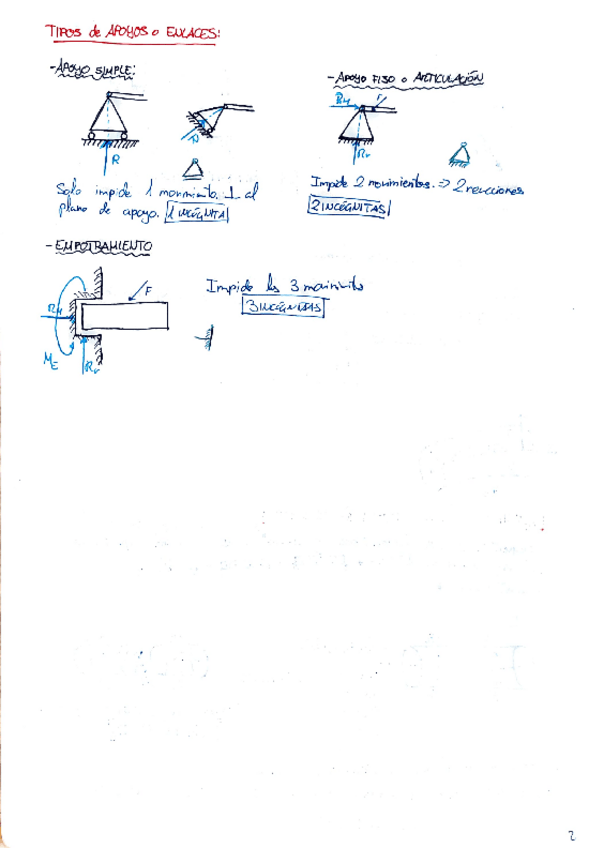 TIPOS de APOYOS o ENLACES:
-APOYO SIMPLE:
R
R
Solo impide 1 movimiento. ⊥ al
plano de apoyo. 1 INCÓGNITA
- APOYO FIJO o ARTICULACIÓN
RH
F
Rv
Impide 2 movimientos. => 2 reacciones
2 INCÓGNITAS
- EMPOTRAMIENTO
F
RH
ME
Rv
Impide los 3 movimientos
3 INCÓGNITAS
2